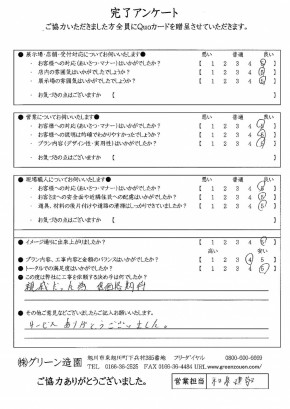 完了アンケート
ご協力いただきました方全員にQuoカードを贈呈させていただきます。
● 展示場・店舗・受付対応についてお伺いいたします● 悪い 普通 良い
・ お客様への対応(あいさつ・マナー)はいかがでしたか? 【 1 2 3 4 5 】
・ 店内の雰囲気はいかがでしたでしょうか? 【 1 2 3 4 5 】
・ 展示場の雰囲気はいかがでしたか? 【 1 2 3 4 5 】
・ お気づきの点はございますか 【 】
● 営業についてお伺いいたします● 悪い 普通 良い
・ お客様への対応(あいさつ・マナー)はいかがでしたか? 【 1 2 3 4 5 】
・ お客様への説明は的確でわかりやすかったでしょうか? 【 1 2 3 4 5 】
・ プラン内容(デザイン性・実用性)はいかがでしたか? 【 1 2 3 4 5 】
・ お気づきの点はございますか 【 】
● 現場職人についてお伺いいたします● 悪い 普通 良い
・ お客様への対応(あいさつ・マナー)はいかがでしたか? 【 1 2 3 4 5 】
・ お客さまへの安全面や近隣住民への配慮はいかがでしたか? 【 1 2 3 4 5 】
・ 道具、材料の後片付けや道路の清掃はしっかりできていましたか? 【 1 2 3 4 5 】
・ お気づきの点はございますか 【 】
● イメージ通りに出来上がりましたか? 【 1 2 3 4 5 】
高い 普通 安い
● プラン内容、工事内容と金額のバランスはいかがでしたか? 【 1 2 3 4 5 】
● トータルでの満足度はいかがでしたか? 【 1 2 3 4 5 】
● この度は弊社に工事を依頼する決め手は何でしたか?
親戚だった為
● その他ご意見などございましたらご記入お願いいたします。
サービス ありがとうございました。
㈱グリーン造園
旭川市東旭川町下兵村285番地 フリーダイヤル 0800-800-8659
TEL 0166-36-2525 FAX 0166-36-4488 URL www.greenzouen.com/
ご協力ありがとうございました。
営業担当